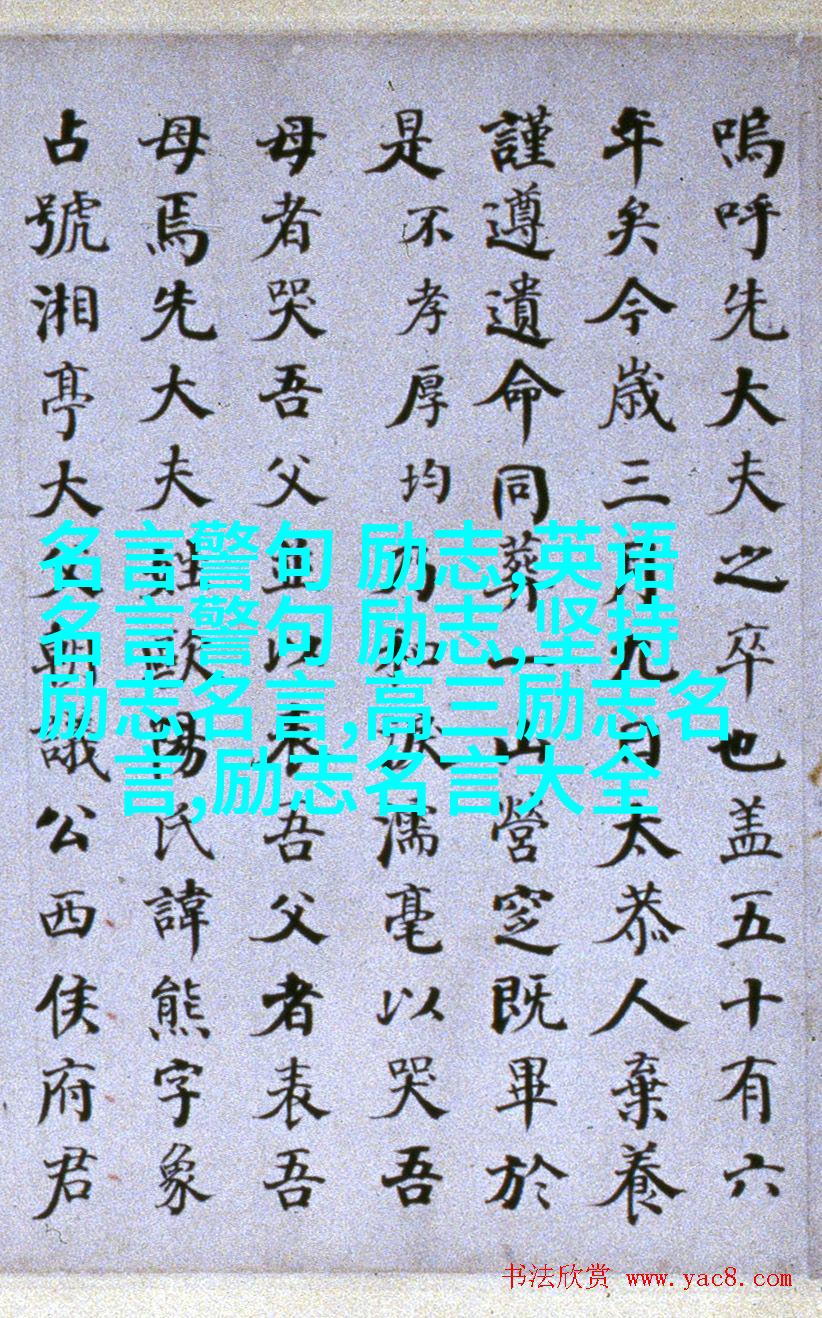 嗚呼先大夫之卒也盖五十有六
年矣今歲三月九日太恭人棄養
謹遵遺命同葬一山營窆既畢於
是不孝厚均乃和淚濡毫以哭吾
母者哭吾父並以表吾父者表吾
母焉先大夫姓歐陽氏諱熊字象
占號湘亭大父朝議公西侯府君
名言警句 励志,英语
名言警句 励志,坚持
励志名言,高三励志名
言,励志名言大全
书法欣赏 www.yac8.com